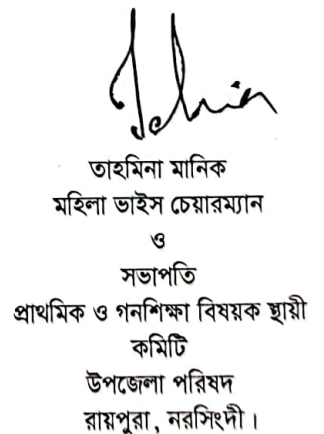 তাহমিনা মানিক
মহিলা ভাইস চেয়ারম্যান
ও
সভাপতি
প্রাথমিক ও গনশিক্ষা বিষয়ক স্থায়ী
কমিটি
উপজেলা পরিষদ
রায়পুরা, নরসিংদী।